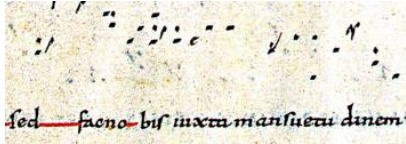 sed faeno bis iuxta mansuetu dinem